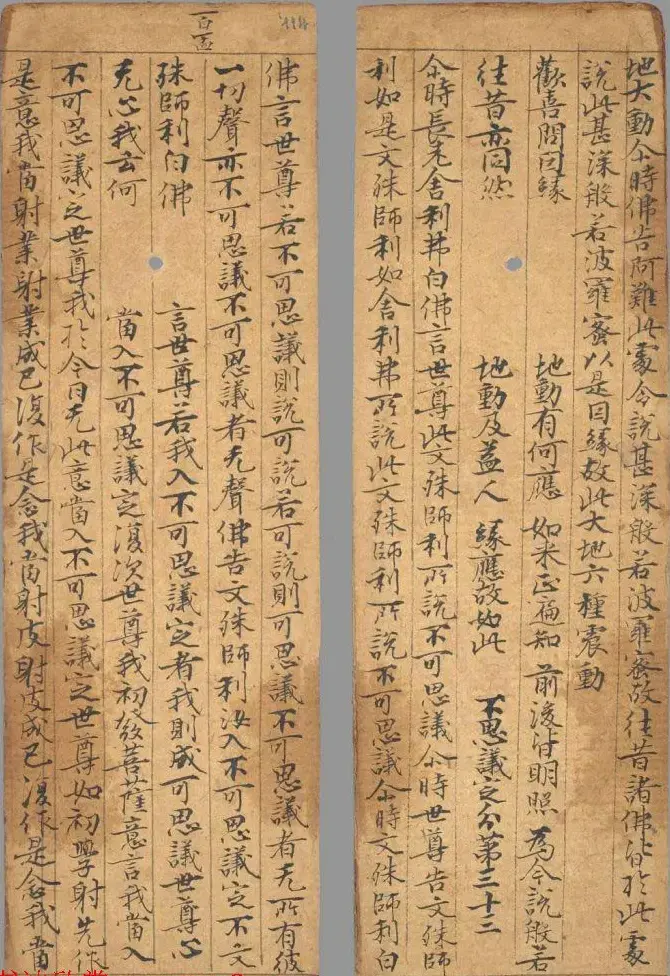 地大動尒時佛告阿難此處今說甚深般若波羅蜜故往昔諸佛皆於此處
說此甚深般若波羅蜜以是因緣故此大地六種震動
歡喜問因緣 地動有何應 如来正遍知 前後皆明照 為今說般若
往昔亦同然 地動及益人 緣應故如此 不思議定分第三十三
尒時長老舍利弗白佛言世尊此文殊師利所說不可思議尒時世尊告文殊師
利如是文殊師利如舍利弗所說此文殊師利所說不可思議尒時文殊師利白
一百五
佛言世尊若不可思議則說可說若可說則可思議不可思議者无所有彼
一切聲亦不可思議不可思議者无聲佛告文殊師利汝入不可思議定不文
殊師利白佛言世尊若我入不可思議定者我則成可思議世尊心
无心我云何當入不可思議定復次世尊我初發菩薩意言我當入
不可思議定世尊我於今日无此意當入不可思議定世尊如初學射先作
是意我當射業射業成已復作是念我當射皮射皮成已復作是念我當